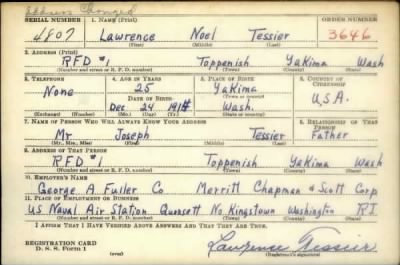 Address Changed
SERIAL NUMBER 1. NAME (Print) ORDER NUMBER
4807 Lawrence Noel Tessier 3646
(First) (Middle) (Last)
2. ADDRESS (Print)
RFD #1 Toppenish Yakima Wash
(Number and street or R. F. D. number) (Town) (County) (State)
3. TELEPHONE 4. AGE IN YEARS 5. PLACE OF BIRTH 6. COUNTRY OF CITIZENSHIP
None 25 Yakima
(Town or county)
DATE OF BIRTH
Dec 24 1914 Wash. U.S.A.
(Exchange) (Number) (Mo.) (Day) (Yr.) (State or country)
7. NAME OF PERSON WHO WILL ALWAYS KNOW YOUR ADDRESS 8. RELATIONSHIP OF THAT PERSON
Mr Joseph Tessier Father
(Mr., Mrs., Miss) (First) (Middle) (Last)
9. ADDRESS OF THAT PERSON
RFD #1 Toppenish Yakima Wash
(Number and street or R. F. D. number) (Town) (County) (State)
10. EMPLOYER'S NAME
George A Fuller Co Merritt Chapman & Scott Corp
11. PLACE OF EMPLOYMENT OR BUSINESS
US Naval Air Station Quonsett No Kingstown Washington R.I.
(Number and street or R. F. D. number) (Town) (County) (State)
I AFFIRM THAT I HAVE VERIFIED ABOVE ANSWERS AND THAT THEY ARE TRUE.
REGISTRATION CARD
D. S. S. Form 1 Lawrence Tessier
(over) (Registrant's signature)